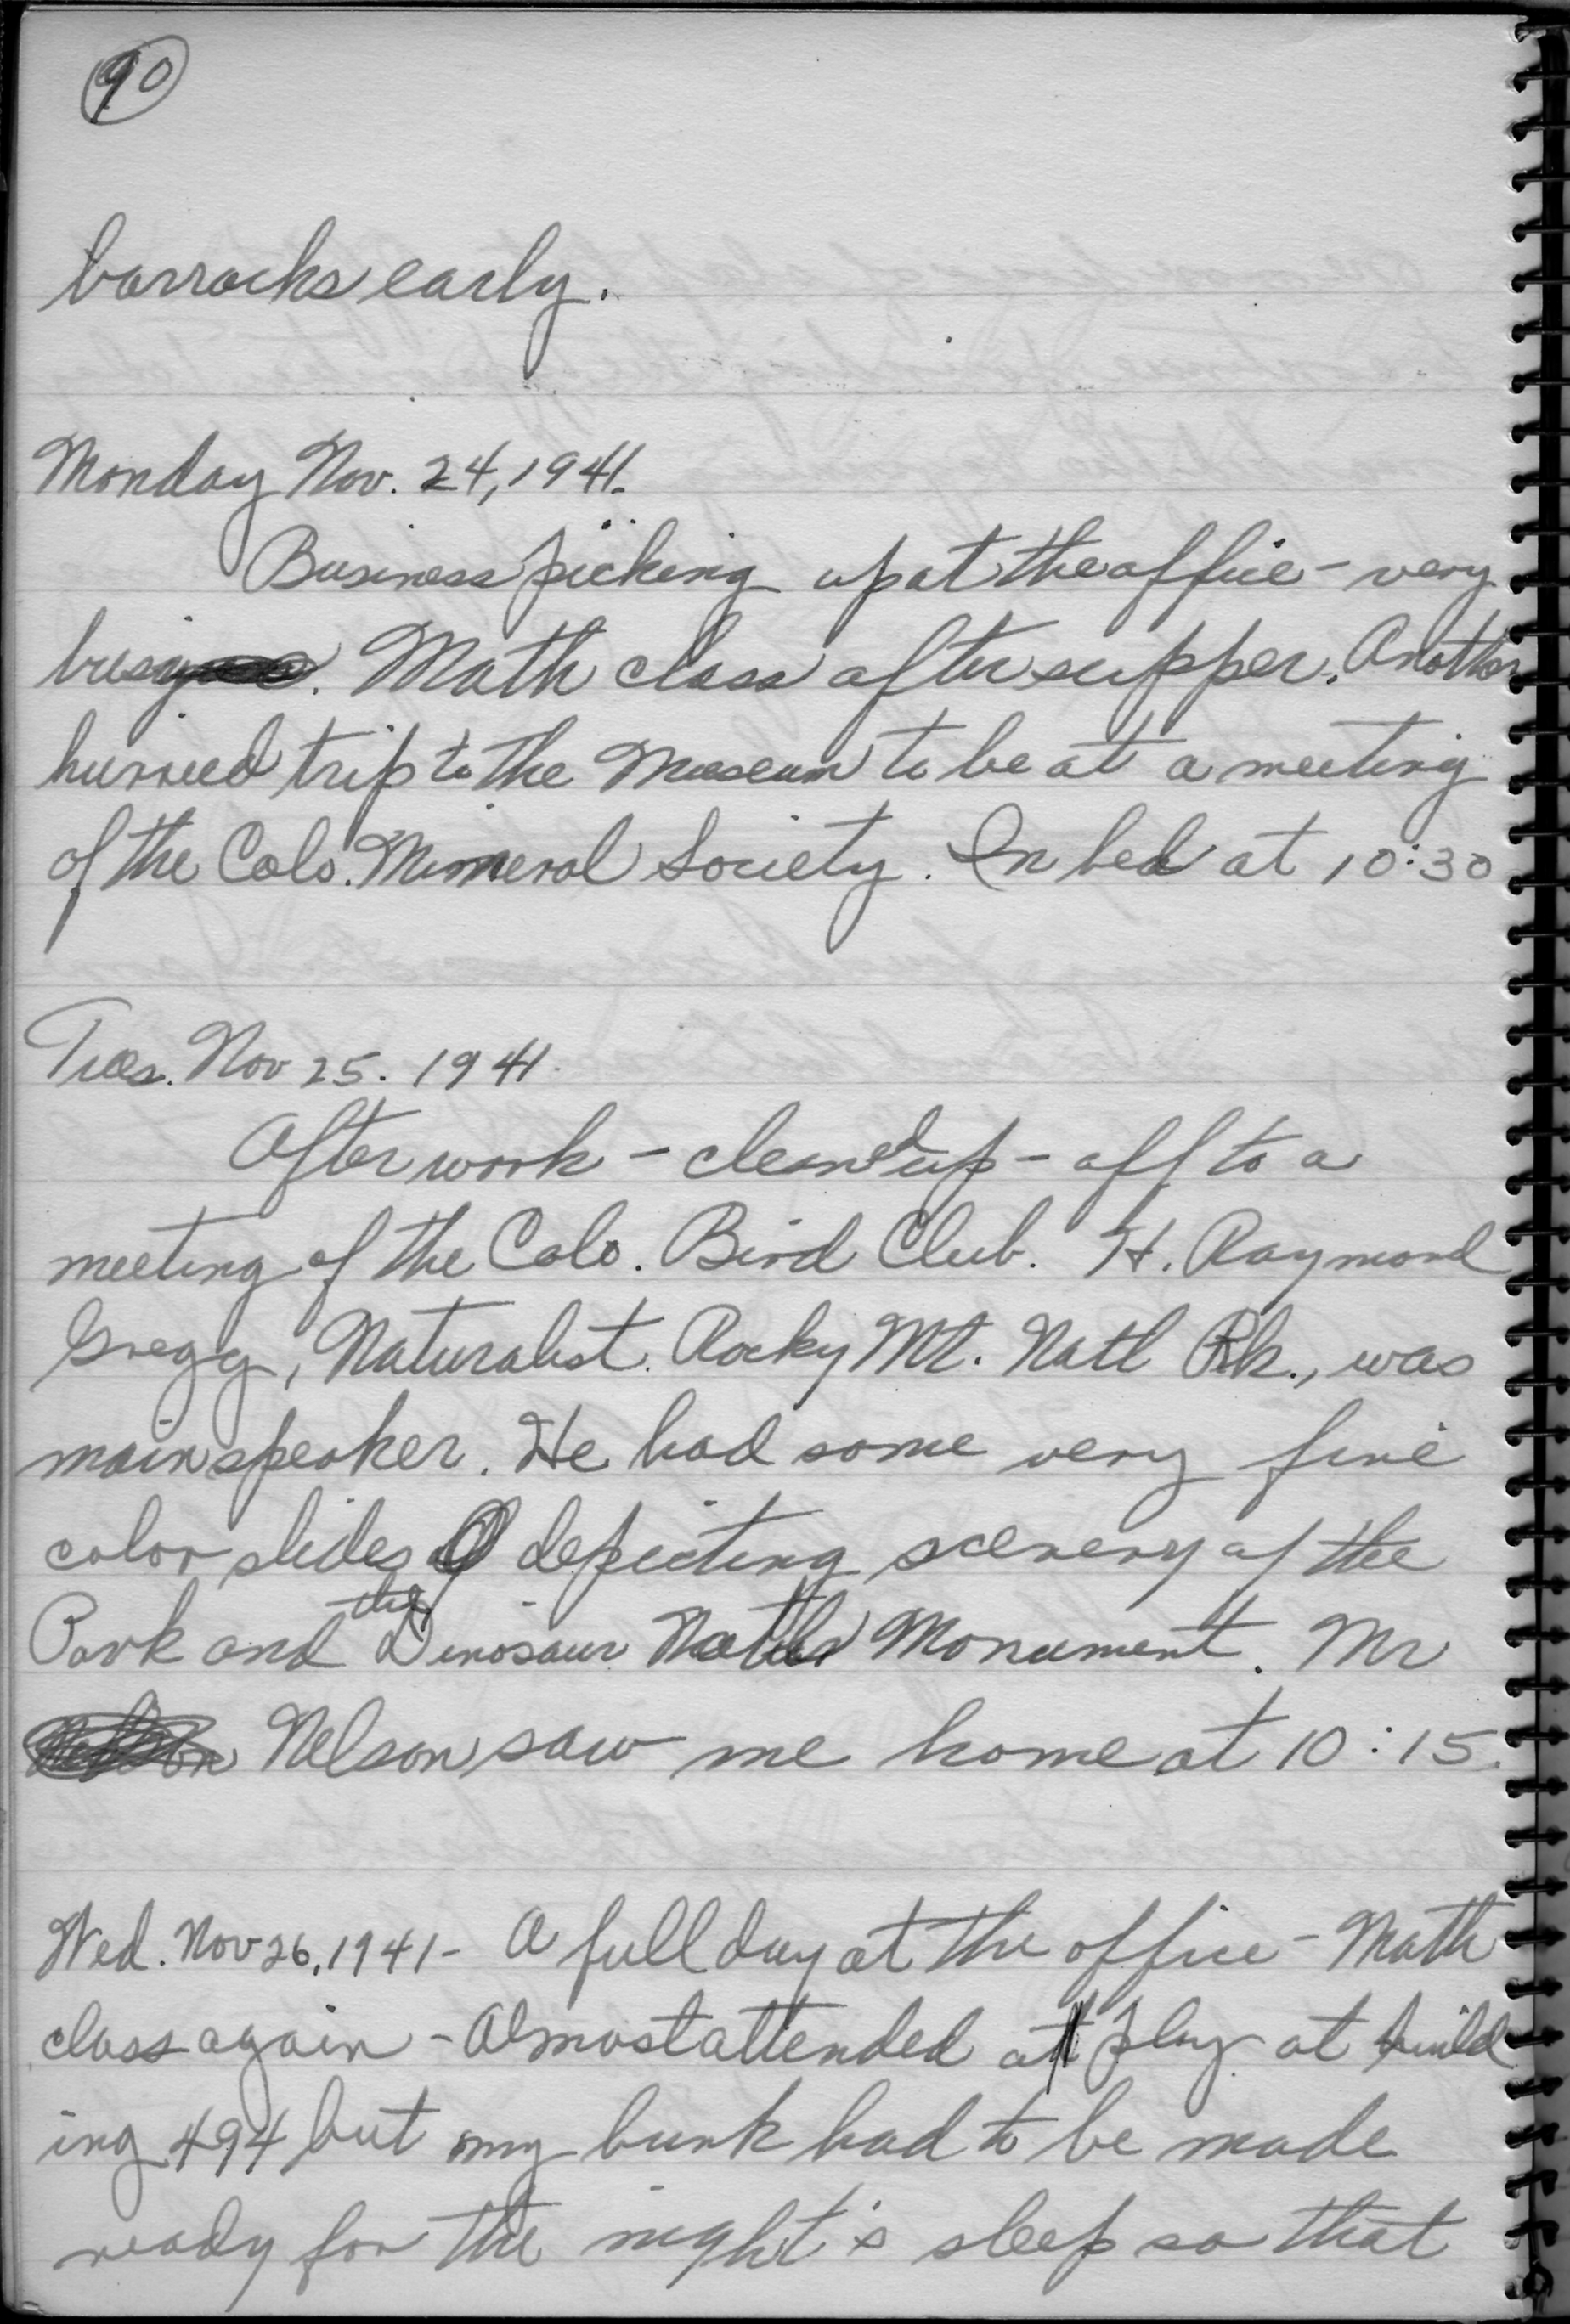 90
barracks early.
Monday Nov. 24, 1941.
Business picking up at the office - very
busy. Math class after supper. Another
hurried trip to the Museum to be at a meeting
of the Colo. Mineral Society. In bed at 10:30
Tues. Nov 25. 1941.
After work - cleaned up - off to a
meeting of the Colo. Bird Club. H. Raymond
Gregg, Naturalist. Rocky Mt. Natl Pk., was
main speaker. He had some very fine
color slides depicting scenery of the
Park and the Dinosaur Natl Monument. Mr
Nelson saw me home at 10:15.
Wed. Nov 26, 1941 - A full day at the office - Math
class again - Almost attended a play at build
ing 494 but my bunk had to be made
ready for the night's sleep so that